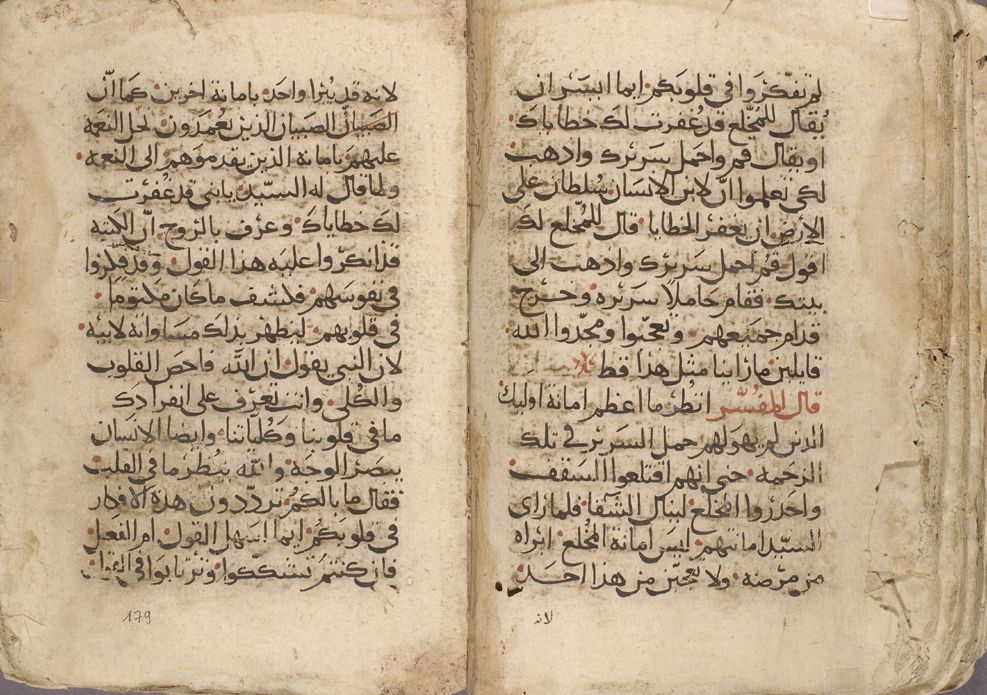 لم تفكروا في قلوبكم ايما ايسر ان
يُقال للمُخّلع قد غُفرت لك خطاياك
او يقال قم واحمل سريرك واذهب
لكي تعلموا انّ لابن الانسان سُلطان على
الارض ان يغفر الخطايا قال للمُخّلع لك
اقول قُم احمل سريرك واذهب الى
بيتك فقام حاملا سريره وخرج
قدام جميعهم وتعجّبوا ومجّدوا الله
قايلين ما راينا مثل هذا قط
قال المفسّر انظر ما اعظم امانة اوليك
الذين لم يهولهم حمل السرير في تلك
الزحمه حتى انهم اقتلعوا السقف
واحدروا المخلع لينال الشفا فلما راى
السيّد امانتهم ليس امانة المُخلع ابراه
من مرضه ولا تعجبّن من هذا احد
لانه
لانه قد يُبرا واحد بامانة اخرين كما انّ
الصبيان الصبيان الذين يُعمدون تحل النعمه
عليهم بامانة الذين يقدموهم الى النعمه
ولما قال له السيّد يابني قد غُفرت
لك خطاياك وعرف بالروح انّ الكتبه
قد انكروا عليه هذا القول وقد فكروا
في نفوسهم فكشف ما كان مكتوما
في قلوبهم ليظهر بذلك مساواته لابيه
لان النبي يقول ان الله فاحص القلوب
والكُلى وانت تعرف على انفرادك
ما في قلوبنا وكلياتنا وايضا الانسان
يبصر الوجه والله ينظر ما في القلب
فقال ما بالكُم تردّدون هذه الافكار
في قلوبكُم ايما اسهل القول ام الفعل
فان كنتم تتشككوا وترتابوا في
179